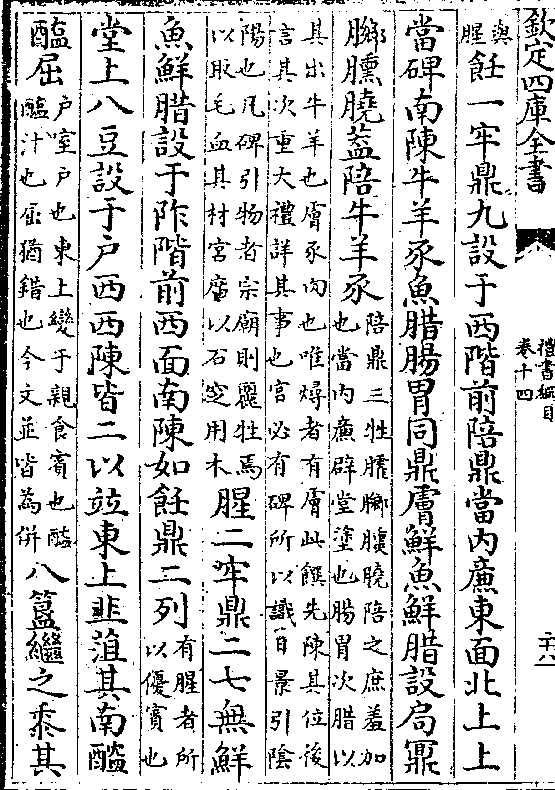 欽定四庫全書
禮書綱目
卷十四
二十八
與
腥
飪一牢鼎九設于西階前陪鼎當内亷東面北上上
當碑南陳牛羊豕魚腊腸胃同鼎膚鮮魚鮮腊設扃鼏
膷臐膮蓋陪牛羊豕
陪鼎三牲臛膷臐膮陪之庶羞加
也當内亷辟堂塗也腸胃次腊以
其出牛羊也膚豕肉也唯燖者有膚此饌先陳其位後
言其次重大禮詳其事也宫必有碑所以識日景引陰
陽也凡碑引物者宗廟則麗牲焉
以取毛血其材宫廟以石窆用木
腥二牢鼎二七無鮮
魚鮮腊設于阼階前西面南陳如飪鼎二列
有腥者所
以優賓也
堂上八豆設于戶西西陳皆二以竝東上韭菹其南醓
醢屈
戶室戶也東上變于親食賓也醓
醢汁也屈猶錯也今文竝皆為併
八簋繼之黍其